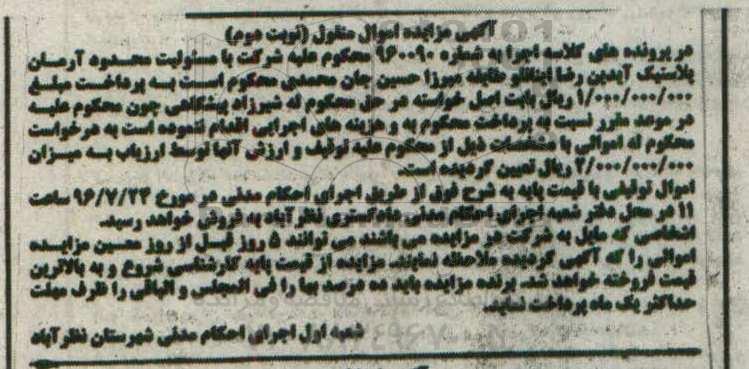 آگهی مزایده اموال منقول (نوبت دوم)
در پرونده های کلاسه اجرا به شماره ۹۶۰۰۹۰ محکوم علیه شرکت با مسئولیت محدود آرمــان
پلاستیک آبدین رضا اینانلو طایفه میرزا حسین جان محمدی محکوم اســت بــه پرداخــت مبلــغ
۱/۰۰۰/۰۰۰/۰۰۰ ریال بابت اصل خواسته در حق محکوم له شیرزاد پیشگاهی چون محکوم علیــه
در موعد مقرر نسبت به پرداخت محکوم به و هزینه های اجرایی اقدام ننموده است به درخواست
محکوم له اموالی با مشخصات ذیل از محکوم علیه توقیف و ارزش آنها توسط ارزیاب بــه میــزان
۲/۰۰۰/۰۰۰/۰۰۰ ریال تعیین گردیده است.
اموال توقیفی با قیمت پایه به شرح فوق از طریق اجرای احکام مدنی در مورخ ۹۶/۷/۲۴ ساعت
۱۱ در محل دفتر شعبه اجرای احکام مدنی دادگستری نظرآباد به فروش خواهد رسید.
اشخاصی که مایل به شرکت در مزایده می باشند می توانند ۵ روز قبــل از روز معــین مزایــده
اموالی را که آگهی گردیده ملاحظه نمایند. مزایده از قیمت پایه کارشناسی شروع و به بالاترین
قیمت فروخته خواهد شد. برنده مزایده باید ده درصد بها را فی المجلس و الباقی را ظرف مهلت
حداکثر یک ماه پرداخت نماید.
شعبه اول اجرای احکام مدنی شهرستان نظرآباد